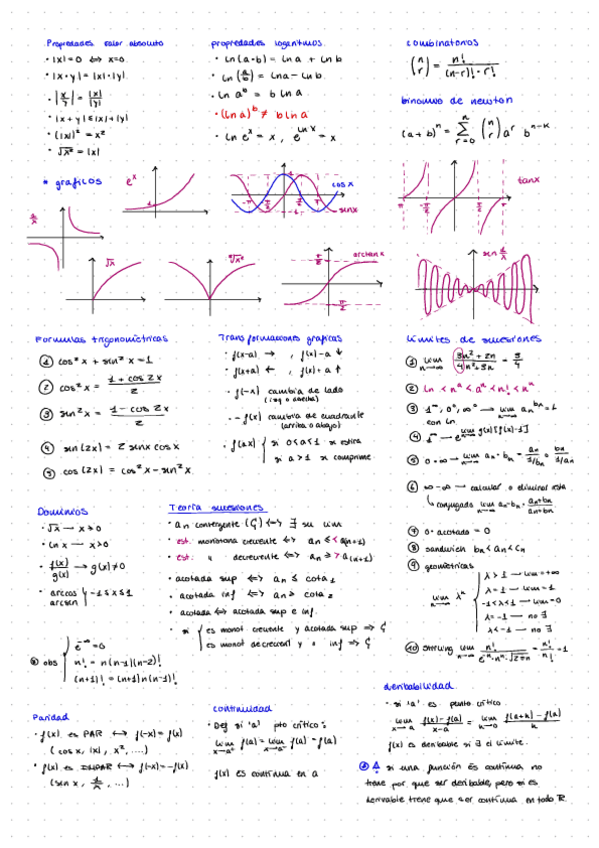 Propiedades valor absoluto
• |x| = 0 ⟺ x=0
• |x·y| = |x|·|y|
• |x/y| = |x|/|y|
• |x+y| ≤ |x|+|y|
• (|x|)² = x²
• √x² = |x|
propiedades logaritmos
• ln(a·b) = ln a + ln b
• ln(a/b) = ln a - ln b
• ln aᵇ = b ln a
• (ln a)ᵇ ≠ b ln a
• ln eˣ = x, e^(ln x) = x
combinatorios
(n r) = n! / (n-r)!·r!
binomio de newton
(a+b)ⁿ = Σ r=0 n (n r) aʳ bⁿ⁻ᴷ
* gráficos
1/x
eˣ
1
cos x
sin x
-π
π
tan x
√x
arctan x
π/2
sin 1/x
Formulas trigonométricas
① cos² x + sen² x = 1
② cos² x = 1 + cos 2x / 2
③ sen² x = 1 - cos 2x / 2
④ sen (2x) = 2 senx cos x
⑤ cos (2x) = cos² x - sen² x
Transformaciones gráficas
• f(x-a) → , f(x)-a ↓
• f(x+a) ← , f(x)+a ↑
• f(-x) cambia de lado
(izq o derecha)
• -f(x) cambia de cuadrante
(arriba o abajo)
• f(ax) { si 0<a<1 x estira
si a>1 x comprime
Límites de sucesiones
① lim n→∞ 3n²+2n / 4n²+3n = 3/4
② ln < nᵃ < aⁿ < n! < nⁿ
③ 1^∞, 0⁰, ∞⁰ → lim n→∞ an^bn = 1
con ln
④ 1^∞ → e^lim g(x)[f(x)-1]
⑤ 0·∞ → lim n→∞ an·bn = an / 1/bn = bn / 1/an
⑥ ∞-∞ → calcular o eliminar resta
↳ conjugado lim n→∞ an-bn · an+bn / an+bn
⑦ 0·acotado = 0
⑧ sandwich bn<an<cn
⑨ geometricas
lim n→∞ λⁿ { λ>1 — lim=+∞
λ=1 — lim=1
-1<λ<1 — lim=0
λ=-1 — no ∃
λ<-1 — no ∃
⑩ Stirling lim n→∞ n! / e⁻ⁿ·nⁿ·√2πn = n!/n! = 1
Dominios
• √x — x≥0
• ln x — x>0
• f(x)/g(x) → g(x)≠0
• arccos
arcsen } -1≤x≤1
obs { e^-∞ = 0
n! = n(n-1)(n-2)!
(n+1)! = (n+1)n(n-1)!
Teoría sucesiones
• an convergente (Ç) ⟺ ∃ su lim
• est. monotona creciente ⟺ an ≤ < a(n+1)
• est. " decreciente ⟺ an ≥ > a(n+1)
• acotada sup ⟺ an ≤ cota 1
• acotada inf ⟺ an ≥ cota 2
• acotada ⟺ acotada sup e inf.
• si { es monot creciente y acotada sup ⇒ Ç
es monot decrecient y " inf ⇒ Ç
Paridad
• f(x) es PAR ⟷ f(-x)=f(x)
(cos x, |x|, x², ...)
• f(x) es IMPAR ⟷ f(-x)=-f(x)
(sen x, 1/x, ...)
continuidad
• Def si 'a' pto crítico:
lim x→a⁺ f(a) = lim x→a⁻ f(a) = f(a)
f(x) es continua en a
deribabilidad
• si 'a' es punto crítico
lim x→a f(x)-f(a) / x-a = lim h→0 f(a+h)-f(a) / h
f(x) es deribable si ∃ el límite.
si una función es continua no
tiene por que ser deribable, pero si es
derivable tiene que ser continua en todo ℝ.